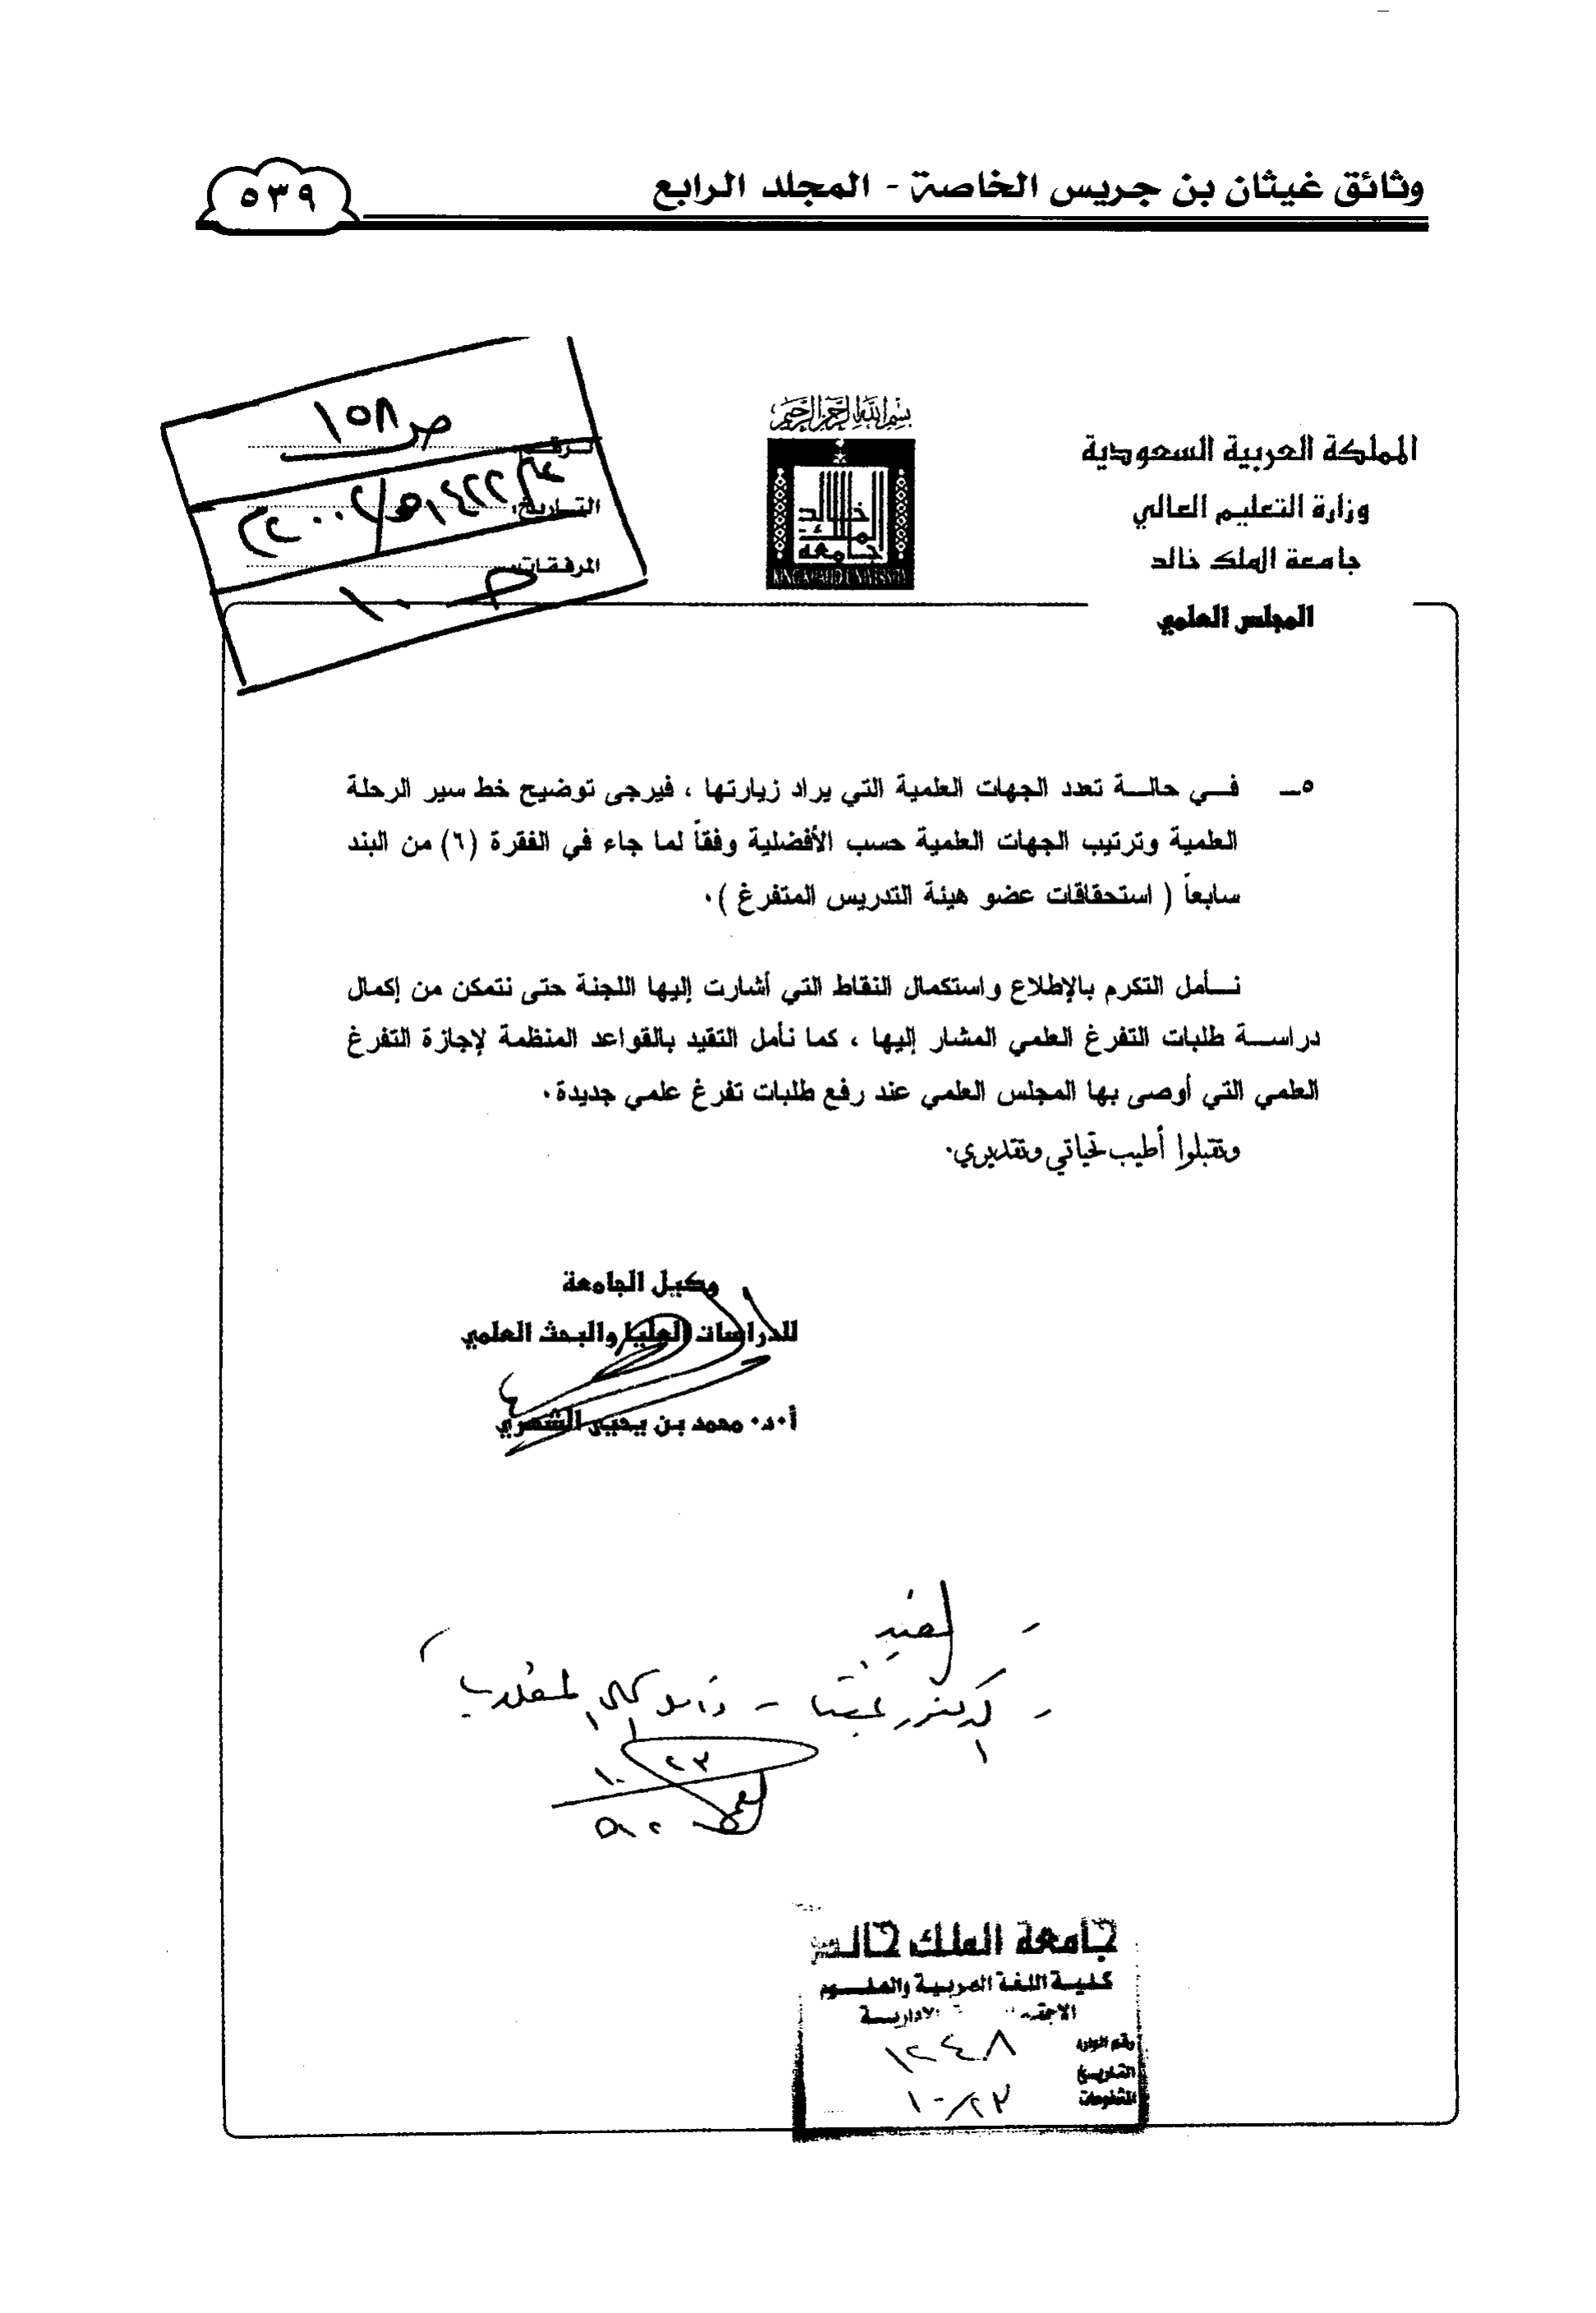 وثائق غيثان بن جريس الخاصة - المجلد الرابع
٥٣٩
بسم الله الرحمن الرحيم
المملكة العربية السعودية
وزارة التعليم العالي
جامعة الملك خالد
المجلس العلمي
جامعة الملك خالد
KING KHALID UNIVERSITY
الرقم: ص١٥٨
التاريخ: ١٤٢٢هـ/٢٠٠٢م
المرفقات:
٥ـ في حالة تعدد الجهات العلمية التي يراد زيارتها ، فيرجى توضيح خط سير الرحلة
العلمية وترتيب الجهات العلمية حسب الأفضلية وفقاً لما جاء في الفقرة (٦) من البند
سابعاً ( استحقاقات عضو هيئة التدريس المتفرغ ).
نأمل التكرم بالإطلاع واستكمال النقاط التي أشارت إليها اللجنة حتى نتمكن من إكمال
دراسة طلبات التفرغ العلمي المشار إليها ، كما نأمل التقيد بالقواعد المنظمة لإجازة التفرغ
العلمي التي أوصى بها المجلس العلمي عند رفع طلبات تفرغ علمي جديدة.
وتقبلوا أطيب تحياتي وتقديري.
وكيل الجامعة
للدراسات العليا والبحث العلمي
أ.د. محمد بن يحيى الشهري
٢٣
١٠
جامعة الملك خالد
كلية اللغة العربية والعلوم
الاجتماعية والادارية
رقم الوارد ١٢٤٨
التاريخ
المشفوعات ١٠/٢٣